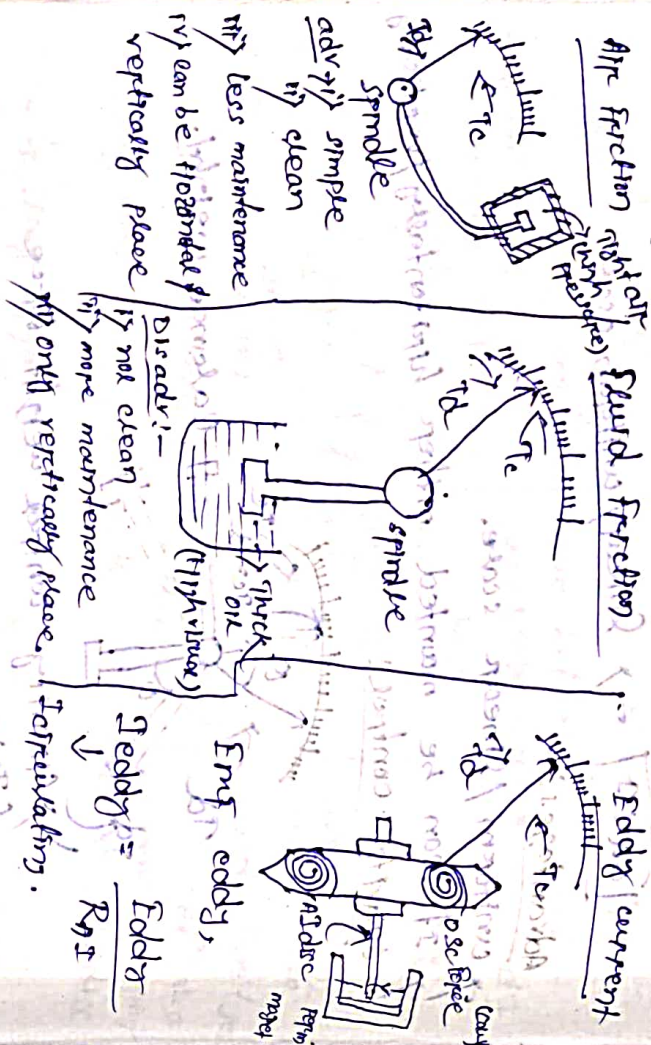 Air friction
Tc
Td
Tight air
(High
pressure)
spindle
adv → i) simple
ii) clean
iii) less maintenance
iv) can be Horizontal &
vertically place
Fluid friction
Tc
Td
spindle
Thick
oil
(High visure)
Disadv:-
i) not clean
ii) more maintenance
iii) only vertically place.
Eddy current
Tc
Td
Al disc
magnet
Emf eddy,
Ieddy = Eddy
Icirculating.